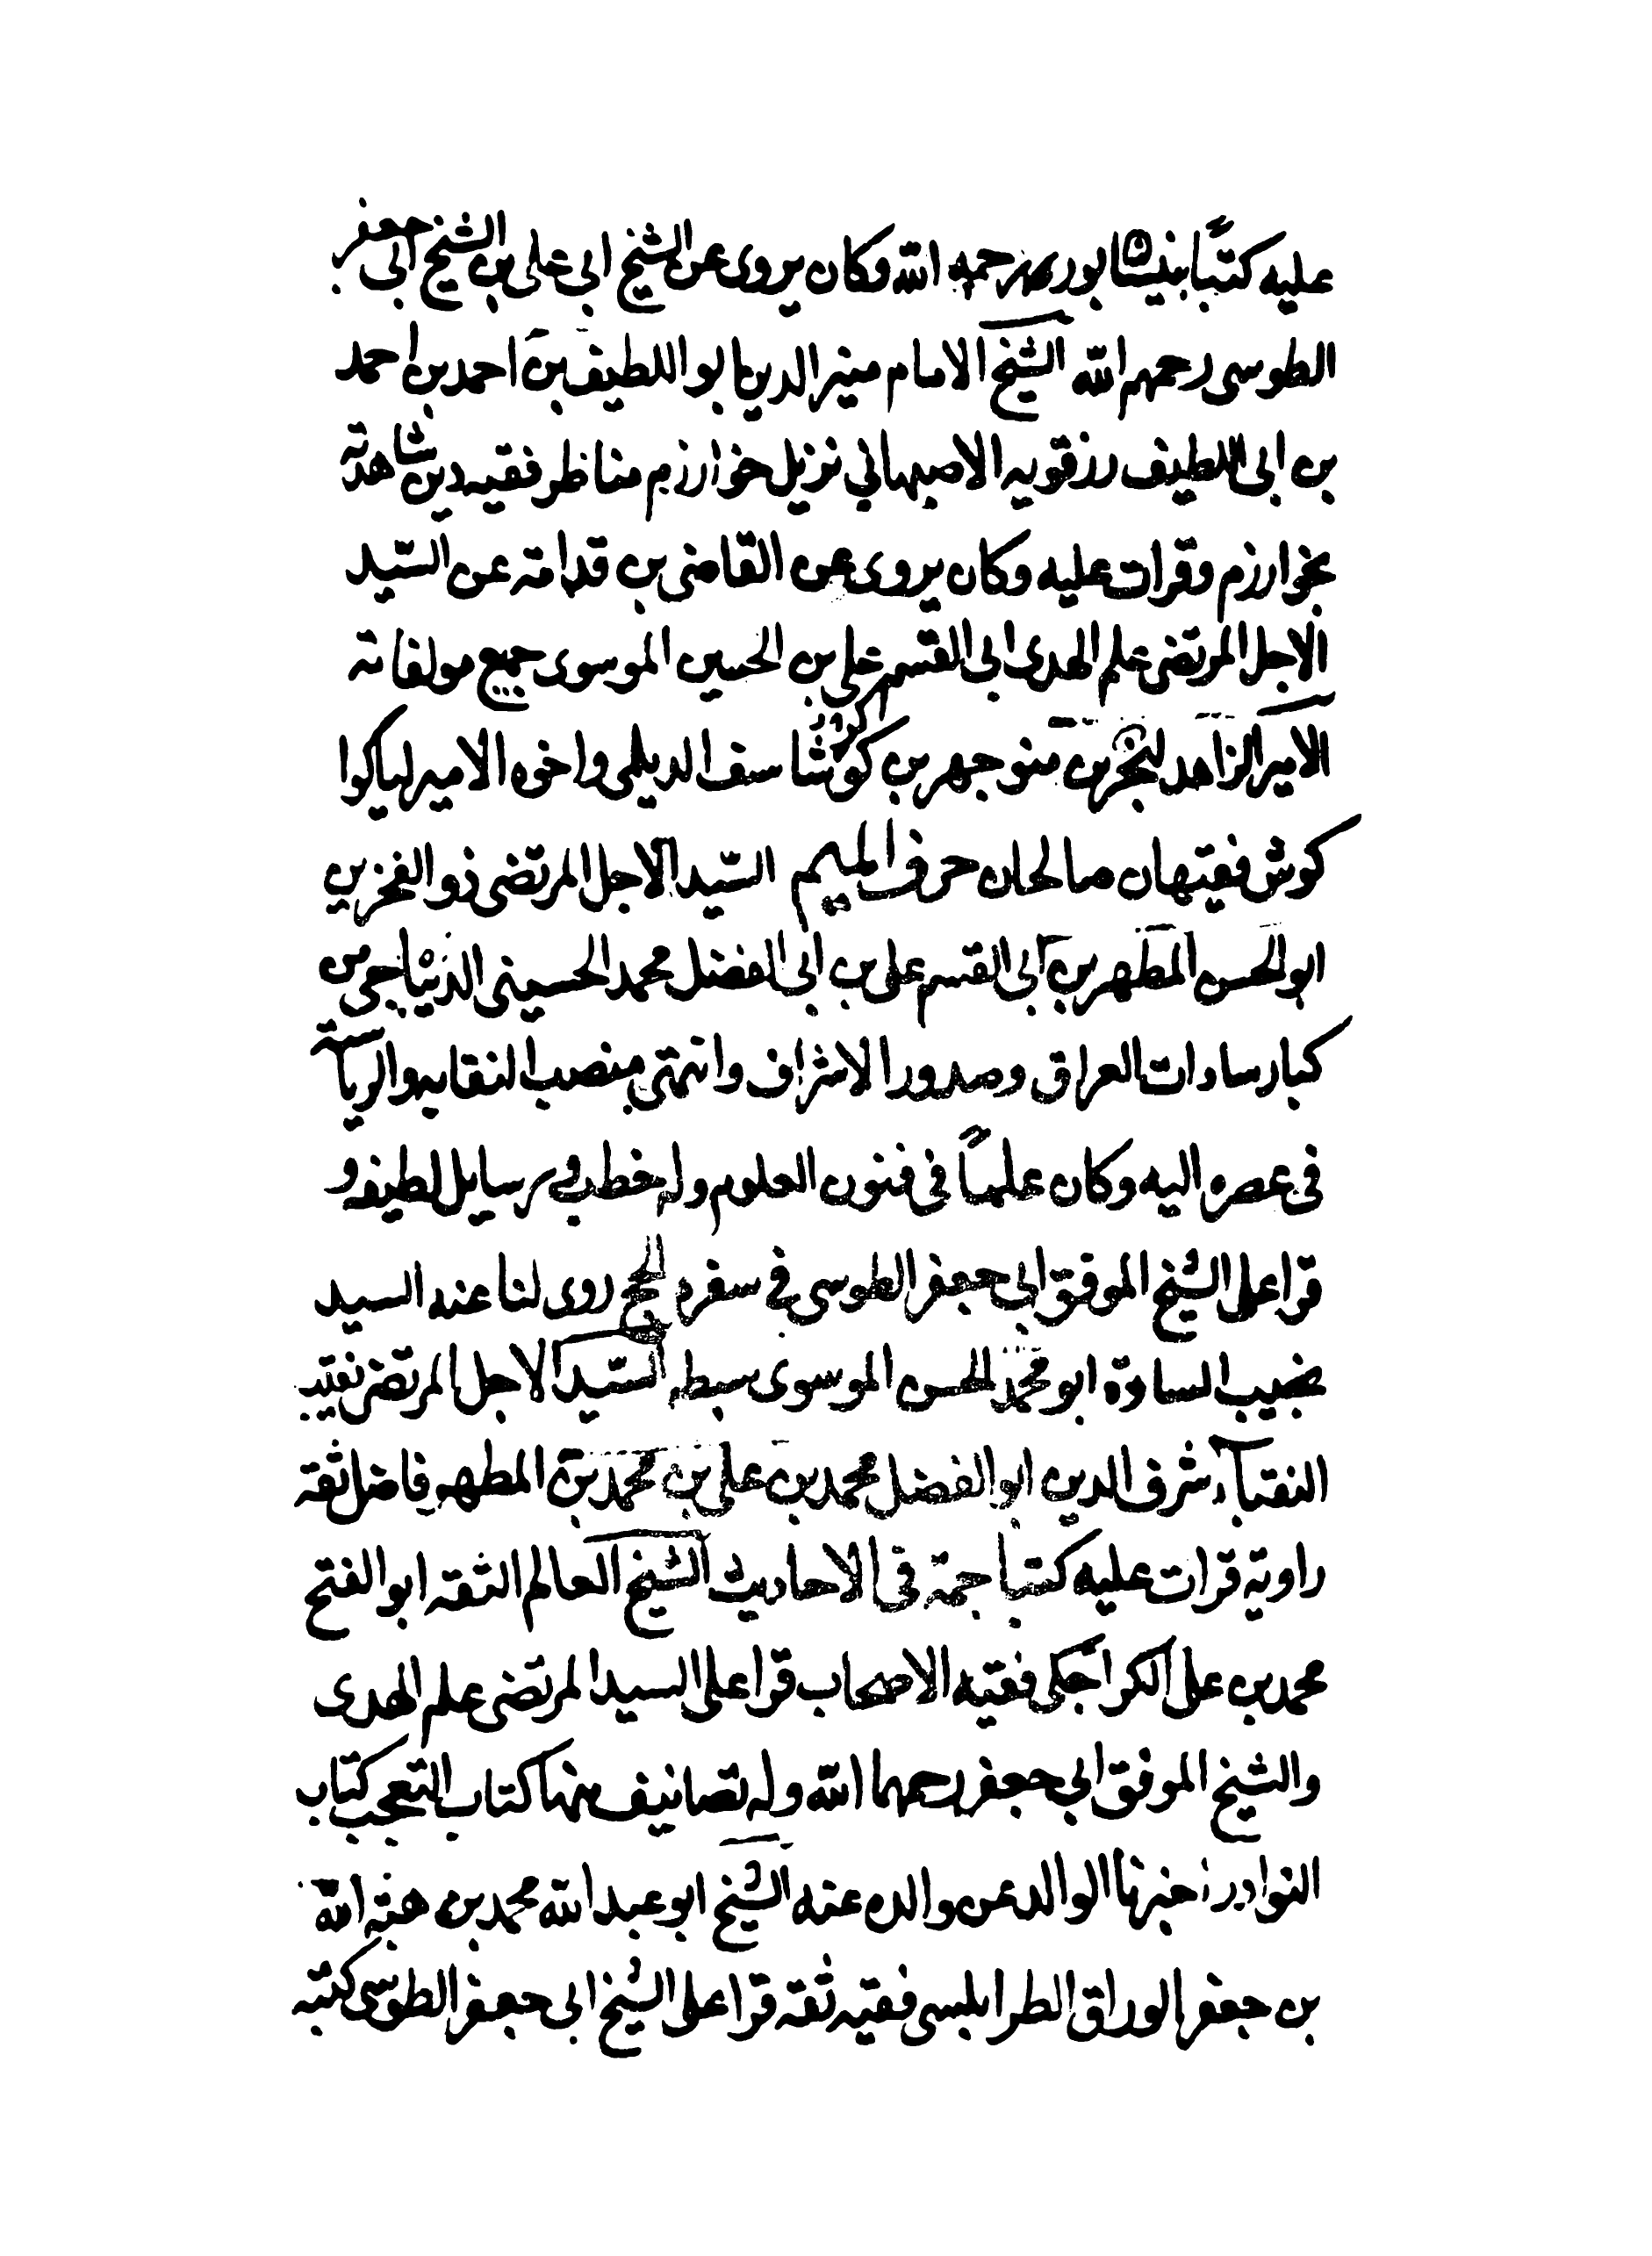 عليه كتبًا بنيشابور رحمه الله وكان يروى عن الشيخ ابى على بن الشيخ ابى جعفر
الطوسى رحمهم الله الشيخ الامام منير الدين ابو اللطيف بن احمد بن احمد
بن ابى اللطيف رزقويه الاصبهانى نزيل خوارزم مناظر فقيه دين شاهدته
بخوارزم وقرات عليه وكان يروى عن القاضى بن قدامة عن السّيد
الاجل المرتضى علم الهدى ابى القسم على بن الحسين الموسوى جميع مولفاته
الامير الزاهد بن منوجهر بن كرشاسف الديلمى واخوه الامير لياكوا
كوش فقيهان صالحان حرف الميم السّيد الاجل المرتضى ذو الفخرين
ابو الحسن المطهر بن ابى القسم على بن ابى الفضل محمد الحسينى الديباجى من
كبار سادات العراق وصدور الاشراف وانتهى منصب النقابه والرياسة
فى عصره اليه وكان علمًا فى فنون العلوم وله خطب ورسايل لطيفه و
قرا على الشيخ الموفق ابى جعفر الطوسى فى سفره الحج روى لنا عنه السيد
نجيب السادة ابو محمد الحسن الموسوى سبطه السّيد الاجل المرتضى نقيب
النقباء شرف الدين ابو الفضل محمد بن على بن محمد بن المطهر فاضل ثقة
راوية قرات عليه كتبا جمة فى الاحاديث الشيخ العالم الثقه ابو الفتح
محمد بن على الكراجكى فقيه الاصحاب قرا على السيد المرتضى علم الهدى
والشيخ الموفق ابى جعفر رحمهما الله وله تصانيف منها كتاب التعجب كتاب
النوادر اخبرنا الوالد عن والده عنه الشيخ ابو عبد الله محمد بن هبة الله
بن جعفر الوراق الطرابلسى فقيه ثقه قرا على الشيخ ابى جعفر الطوسى كتبه